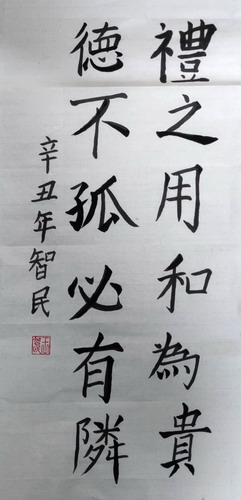 禮之用和為貴
徳不孤必有隣
辛丑年智民